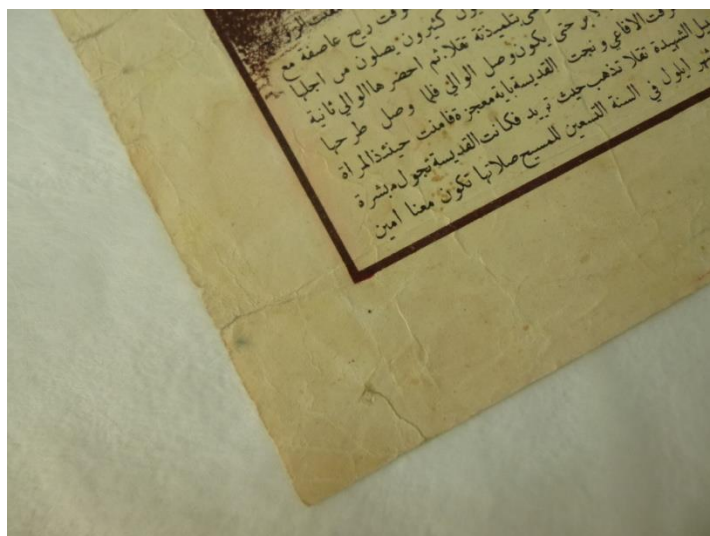 وقت ريح عاصفة مع
كثيرون يصلون من اجلها
بتلميذته تقلا ثم احضرها الوالي ثانية
حتى يكون وصل الوالي فلما وصل طرحها
الافاعي ونجت القديسة باية معجزة فامنت حينئذ المراة
الشهيدة تقلا تذهب حيث تريد فكانت القديسة تجول مبشرة
ايلول في السنة التسعين للمسيح صلاتها تكون معنا امين